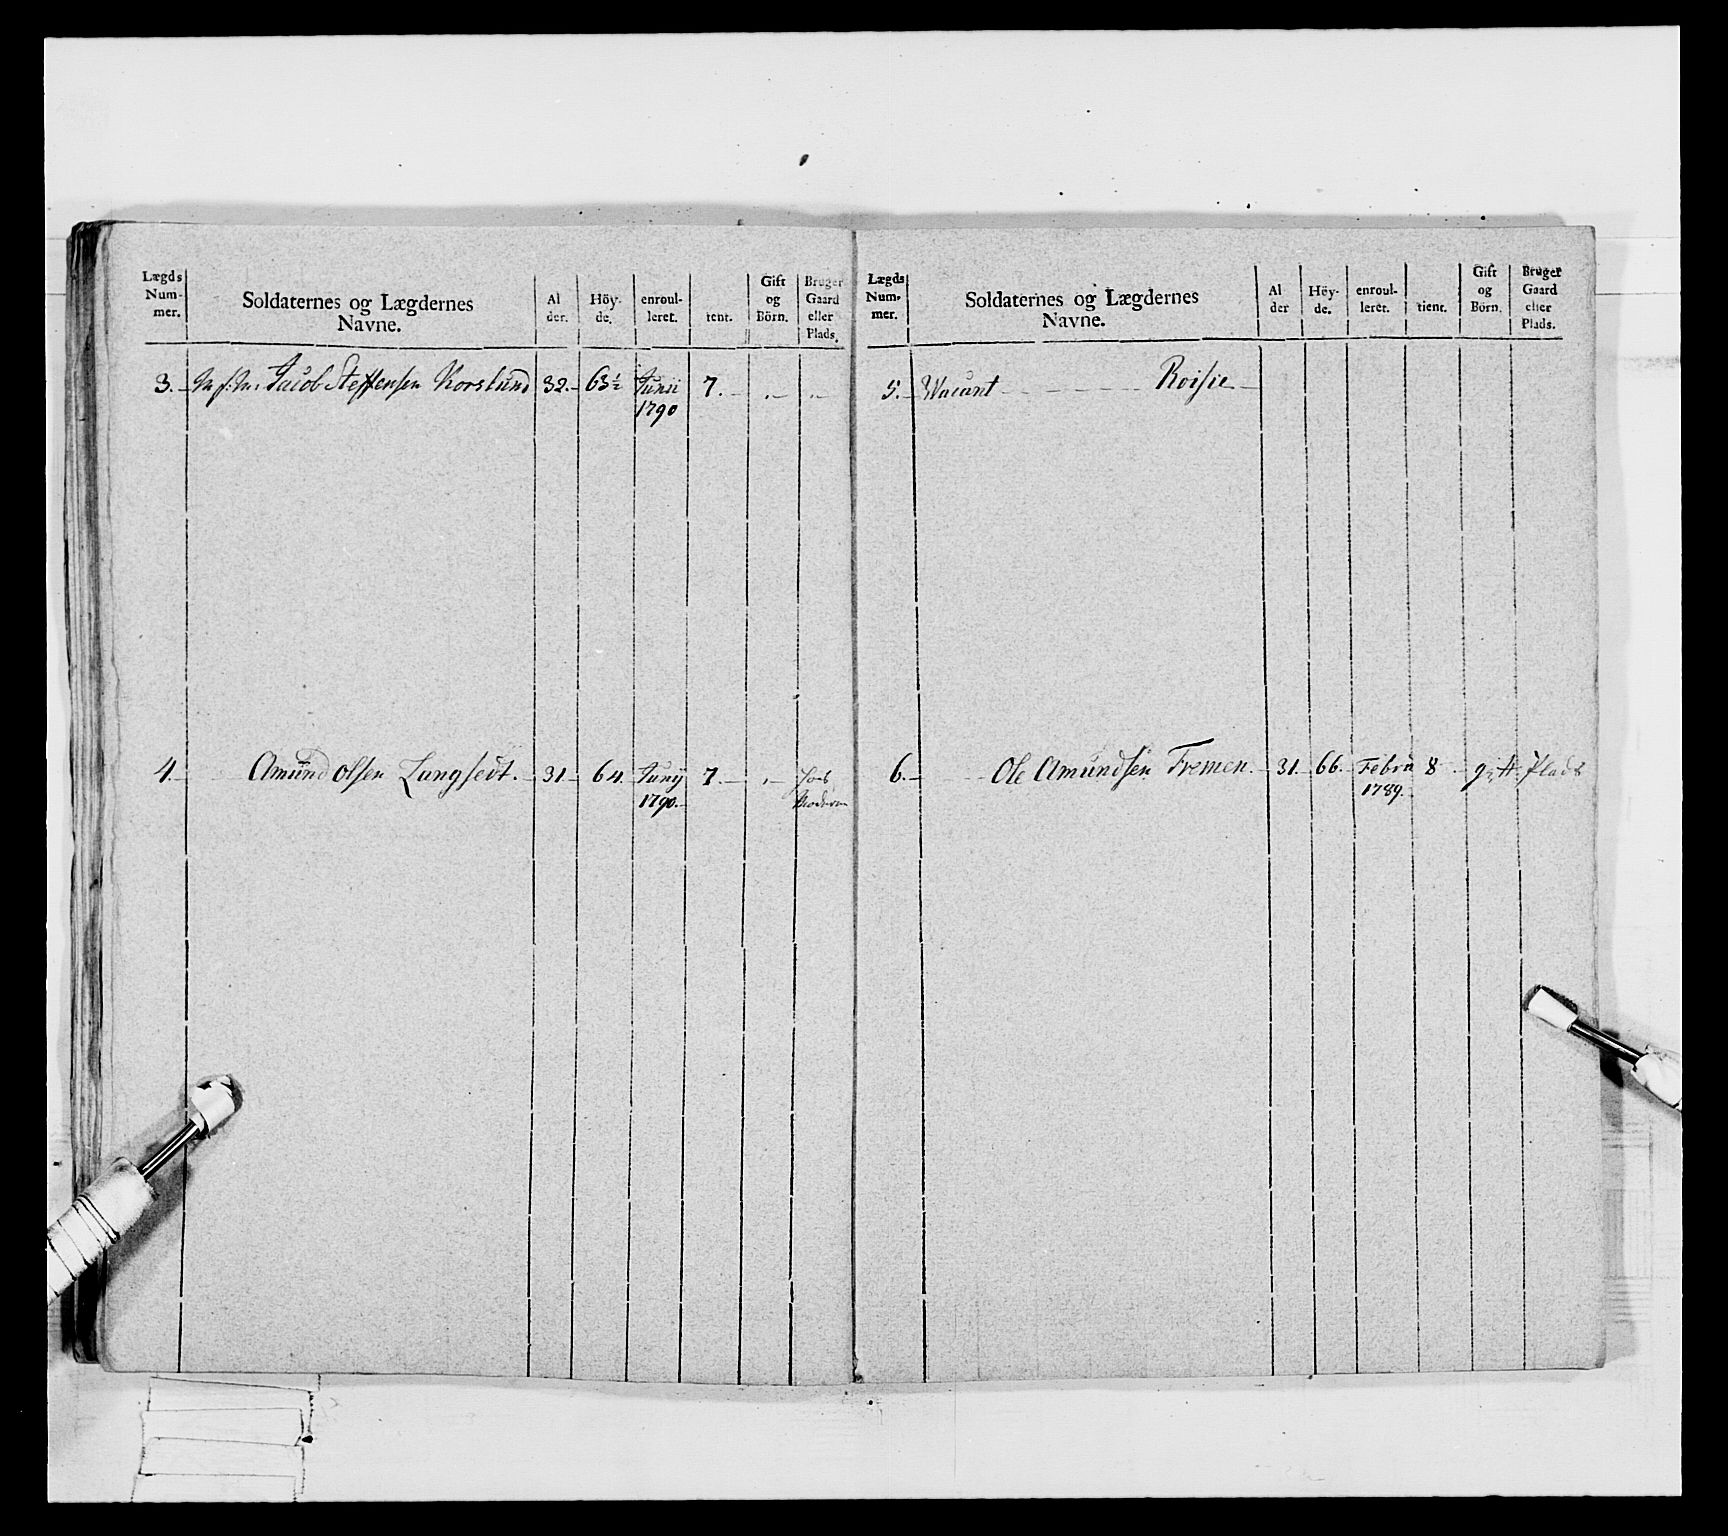 Lægds Num- mer.
Soldaternes og Lægdernes Navne.
Al der.
Höy- de.
enroul- leret.
tient.
Gift og Börn.
Bruger Gaard eller Plads.
3. Jacob Steffensen Korslund 32. 63½ Junii 7.
1790
4. Amund Olsen Langsedt. 31 64. Junij 7. hos
1790. Moderen
Lægds Num- mer.
Soldaternes og Lægdernes Navne.
Al der
Höy- de.
enroul- leret.
tient.
Gift og Börn.
Bruger Gaard eller Plads.
5. Wacant Roisie
6. Ole Amundsen Tremen. 31. 66. Febru 8 Plads
1789.